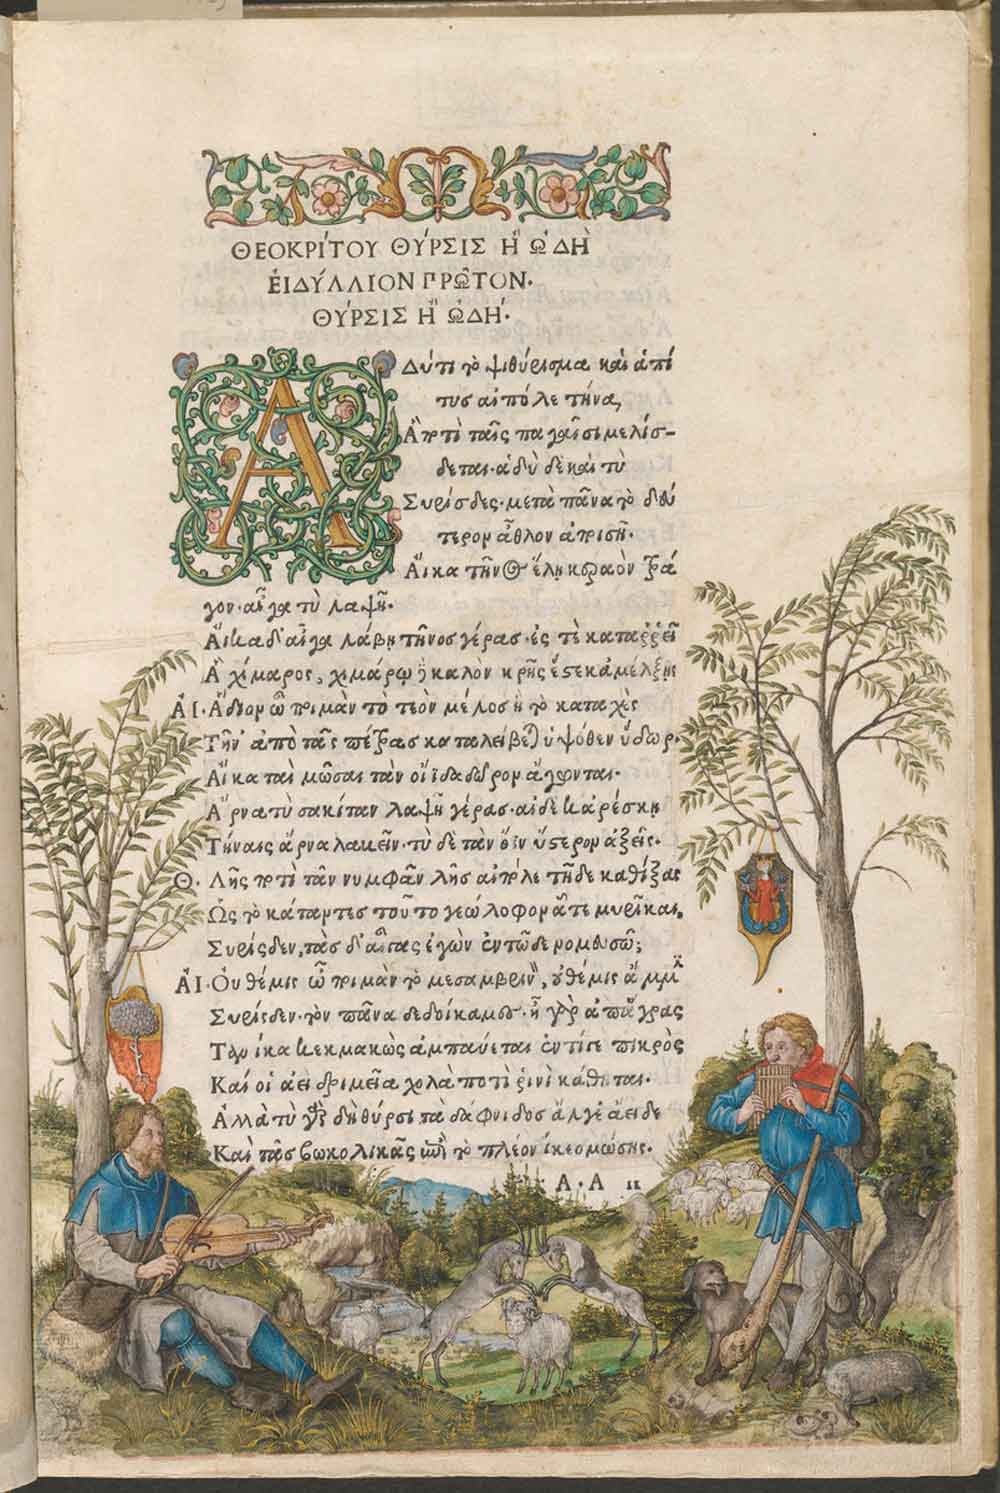 ΘΕΟΚΡΊΤΟΥ ΘΎΡΣΙΣ Ἢ ὨΔῊ
ἘΙΔΎΛΛΙΟΝ ΠΡΩ͂ΤΟΝ.
ΘΎΡΣΙΣ Ἢ ὨΔΉ.
ΑΔύ τι τὸ ψιθύρισμα καὶ ἁ πί
τυς αἰπόλε τήνα,
Ἃ ποτὶ ταῖς παγαῖσι μελίσ-
δεται· ἁδὺ δὲ καὶ τὺ
Συρίσδες· μετὰ πᾶνα τὸ δεύ
τερον ἆθλον ἀποισῇ.
Αἴκα τῆνος ἕλῃ κεραὸν τρά
γον· αἶγα τὺ λαψῇ.
Αἴκα δ' αἶγα λάβῃ τῆνος γέρας· ἐς τὲ καταῤῥεῖ
Ἁ χίμαρος, χιμάρῳ δὲ καλὸν κρῆς ἔς τε κ' ἀμέλξῃς
ΑΙ. Ἅδιον ὦ ποιμὰν τὸ τεὸν μέλος ἢ τὸ καταχὲς
Τῆν' ἀπὸ τᾶς πέτρας καταλείβεται ὑψόθεν ὕδωρ.
Αἴκα ταὶ μῶσαι τὰν οἴϊδα δῶρον ἄγωνται.
Ἄρνα τὺ σακίταν λαψῇ γέρας· αἰ δέ κ' ἀρέσκῃ
Τήναις ἄρνα λαβεῖν· τὺ δὲ τὰν ὄϊν ὕστερον ἀξεῖς.
Θ. Λῇς ποτὶ τᾶν νυμφᾶν λῇς αἰπόλε τῇδε καθίξας
Ὡς τὸ κάταντες τοῦτο γεώλοφον ἅτε μυρῖκαι,
Συρίσδεν, τὰς δ' αἶγας ἐγὼν ἐν τῷδε νομευσῶ;
ΑΙ. Οὐ θέμις ὦ ποιμὰν τὸ μεσαμβρινὸν, οὐ θέμις ἄμμιν
Συρίσδεν· τὸν πᾶνα δεδοίκαμες· ἦ γὰρ ἀπ' ἄγρας
Τανίκα κεκμακὼς ἀμπαύεται ἐντί γε πικρὸς
Καί οἱ ἀεὶ δριμεῖα χολὰ ποτὶ ῥινὶ κάθηται.
Ἀλλὰ τὺ γὰρ δὴ θύρσι τὰ δάφνιδος ἄλγε' ἄειδε
Καὶ τᾶς βωκολικᾶς ἐπὶ τὸ πλέον ἵκεο μώσης.
Α.Α ιι